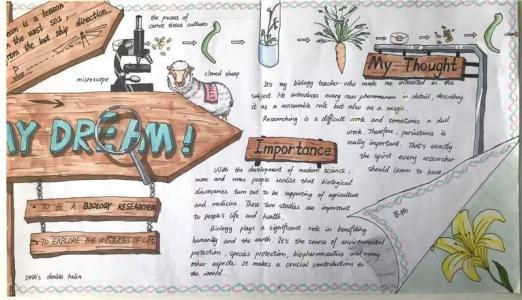 is a beacon
the vast sea,
from the lost ship direction.
the process of
carrot tissue cultures
microscope
cloned sheep
MY DREAM!
TO BE A BIOLOGY RESEARCHER
TO EXPLORE THE MYSTERIES OF LIFE
DNA's double helix
My Thought
It's my biology teacher who made me interested in this
subject. He introduces every new phenomenon in detail, describing
it as a reasonable rule but also as a magic.
Researching is a difficult work and sometimes a dull
work. Therefore, persistence is
really important. That's exactly
the spirit every researcher
should learn to have.
Importance
With the development of modern science,
more and more people realize that biological
discoveries turn out to be supporting of agriculture
and medicine. These two studies are important
to people's life and health.
Biology plays a significant role in benefiting
humanity and the earth. It's the source of environmental
protection, species protection, biopharmaceutics and many
other aspects. It makes a crucial contribution to
the world.